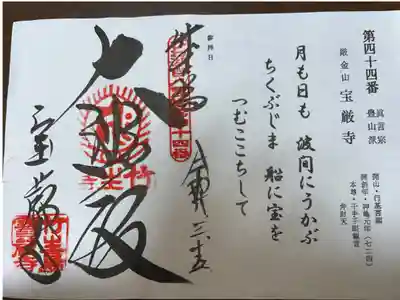 第四十四番
眞言宗
豊山派
厳金山 宝厳寺
開山・行基菩薩
開創年・神亀元年（七二四）
本尊・千手千眼観音
弁財天
月も日も 波間にうかぶ
ちくぶじま 船に宝を
つむここちして
参拝日
竹生島
大悲殿
宝厳寺